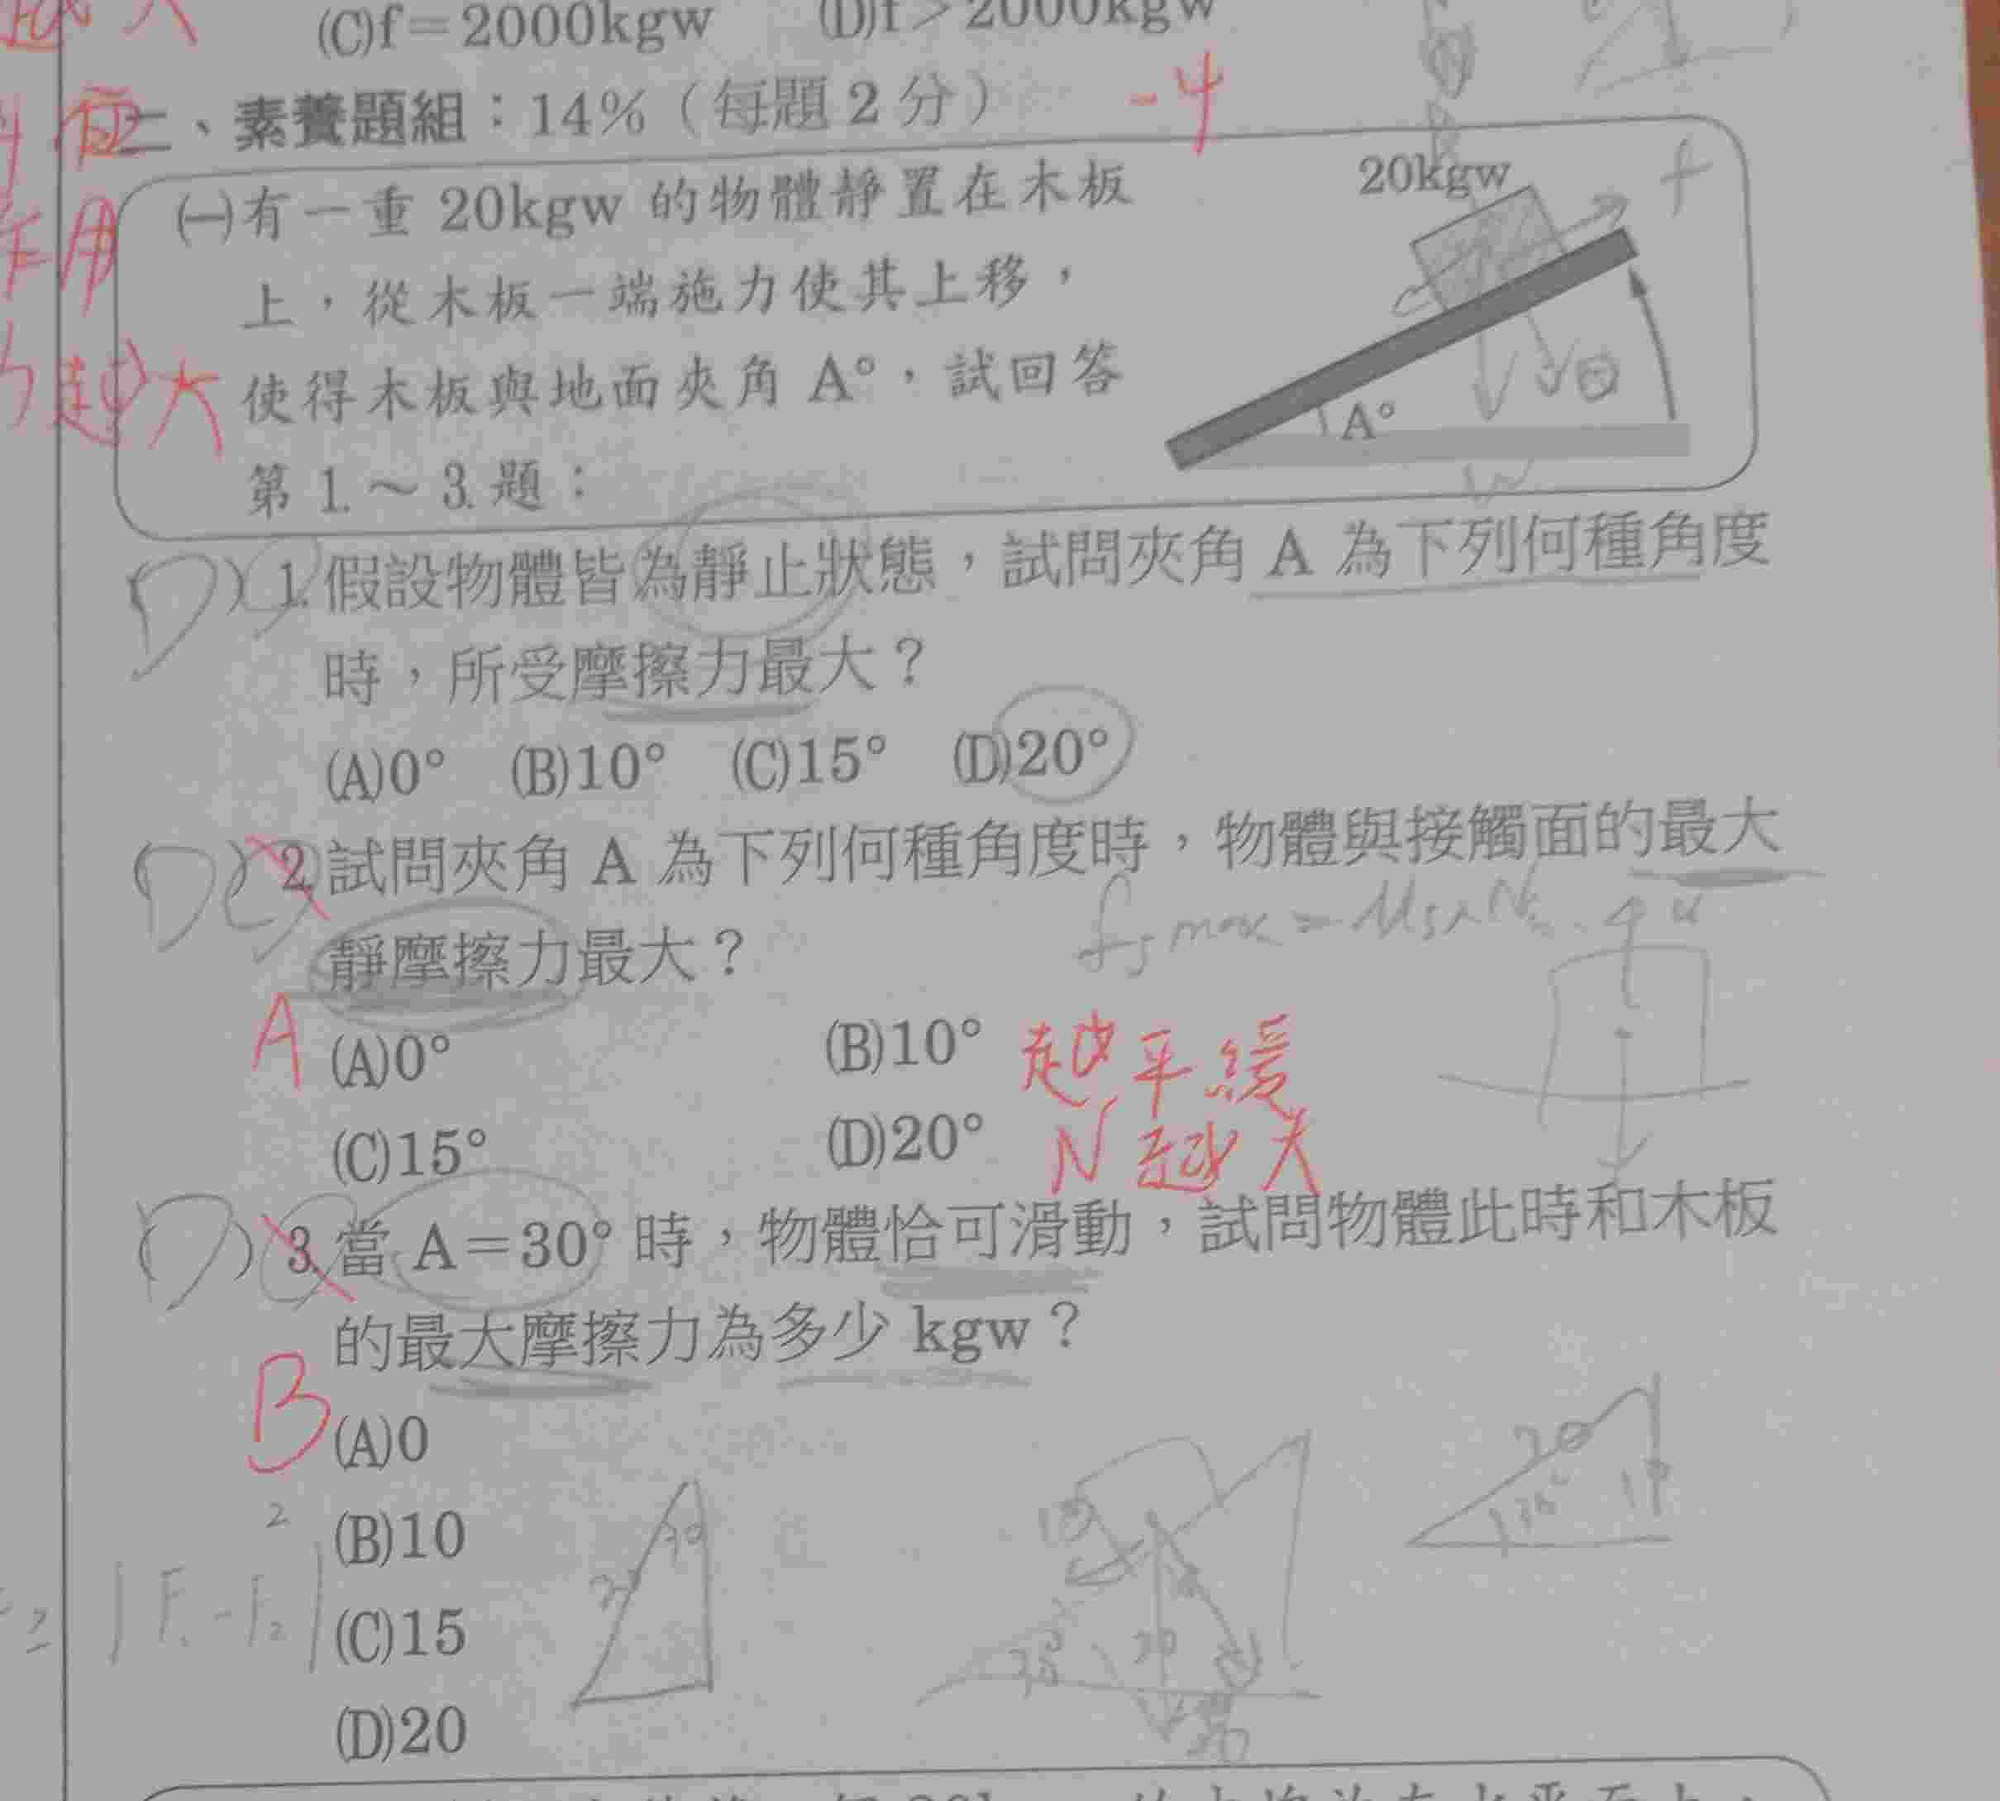 (C)f＝2000kgw (D)f＞2000kgw
二、素養題組：14%（每題2分） -4
㈠有一重 20kgw 的物體靜置在木板
上，從木板一端施力使其上移，
使得木板與地面夾角 A°，試回答
第 1.～3.題：
20kgw
f
A°
θ
W
作用
越大
(D) 1.假設物體皆為靜止狀態，試問夾角 A 為下列何種角度
時，所受摩擦力最大？
(A)0° (B)10° (C)15° (D)20°
(D) 2.試問夾角 A 為下列何種角度時，物體與接觸面的最大
靜摩擦力最大？
A (A)0° (B)10° 越平緩
(C)15° (D)20° N 越大
(D) 3.當 A＝30° 時，物體恰可滑動，試問物體此時和木板
的最大摩擦力為多少 kgw？
B (A)0
(B)10
(C)15
(D)20
20
30